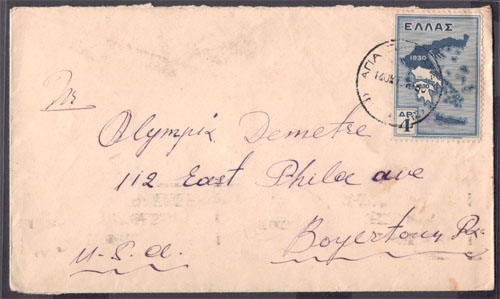 ΕΛΛΑΣ
1930
1830
ΔΡ.
4
ΑΓΙΑ
Mr
Olympia Demetre
112 East Phila ave
Boyertown Pa.
U.S.a.